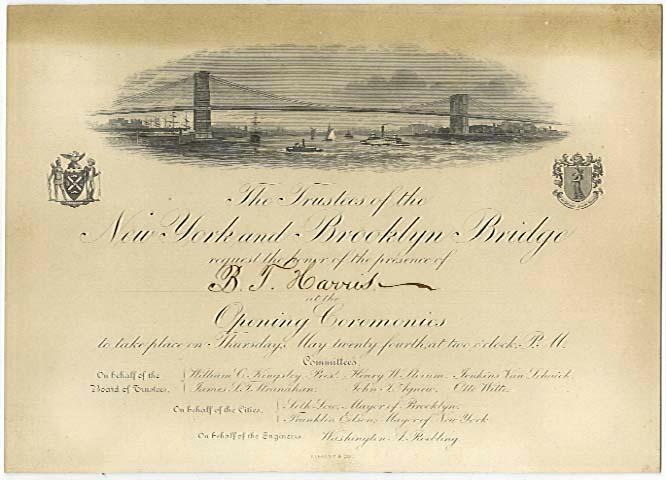 The Trustees of the
New York and Brooklyn Bridge
request the honor of the presence of
B. T. Harris
at the
Opening Ceremonies
to take place on Thursday, May twenty fourth, at two o'clock, P. M.
Committees,
On behalf of the Board of Trustees, William C. Kingsley, Prest. Henry W. Slocum. Jenkins Van Schaick.
James S. T. Stranahan. John T. Agnew. Otto Witte.
On behalf of the Cities, Seth Low, Mayor of Brooklyn.
Franklin Edson, Mayor of New York
On behalf of the Engineers. Washington A. Roebling
& CO.